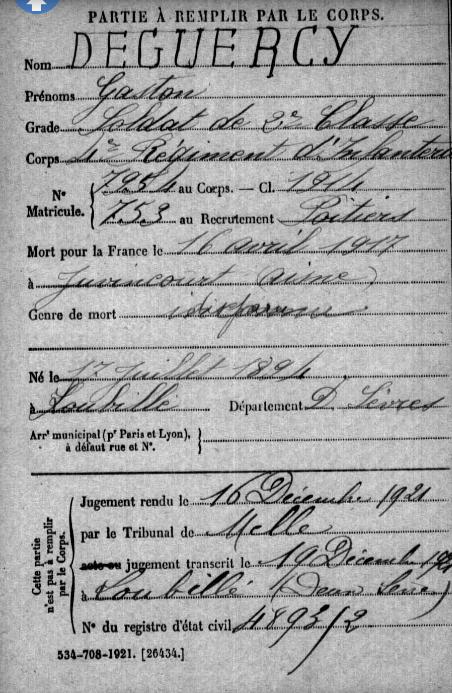 PARTIE À REMPLIR PAR LE CORPS.
Nom DEGUERCY
Prénoms Gaston
Grade Soldat de 2e Classe
Corps 4e Régiment d'Infanterie
N° Matricule. { 7951 au Corps. — Cl. 1914
753 au Recrutement Poitiers
Mort pour la France le 16 avril 1917
à Juvincourt (aisne)
Genre de mort disparu
Né le 17 Juillet 1894
à Loubillé Département D. Sèvres
Arrt municipal (pr Paris et Lyon), à défaut rue et N°. }
Cette partie n'est pas à remplir par le Corps.
Jugement rendu le 16 Décembre 1921
par le Tribunal de Melle
acte ou jugement transcrit le 19 Décembre 1921
à Loubillé (Deux Sèvres)
N° du registre d'état civil 4893/2
534-708-1921. [26434.]